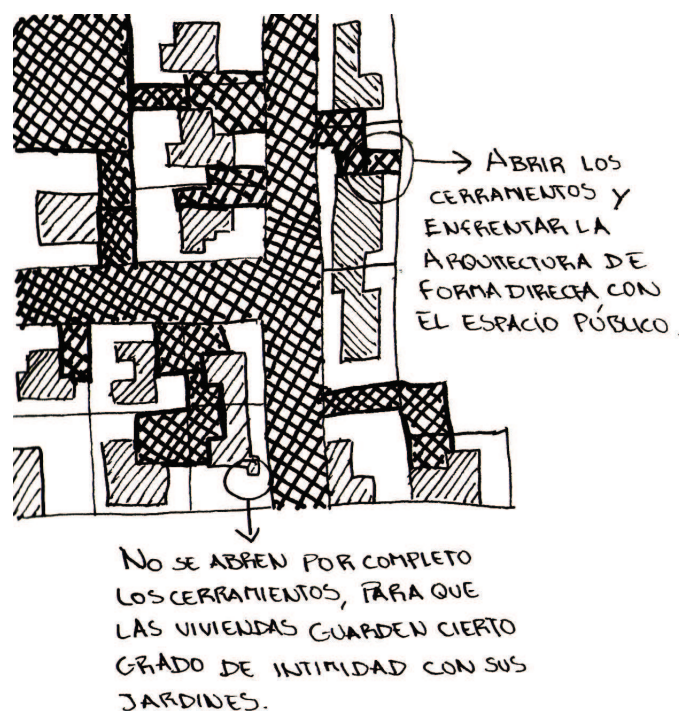 ABRIR LOS
CERRAMIENTOS Y
ENFRENTAR LA
ARQUITECTURA DE
FORMA DIRECTA CON
EL ESPACIO PÚBLICO.
NO SE ABREN POR COMPLETO
LOS CERRAMIENTOS, PARA QUE
LAS VIVIENDAS GUARDEN CIERTO
GRADO DE INTIMIDAD CON SUS
JARDINES.